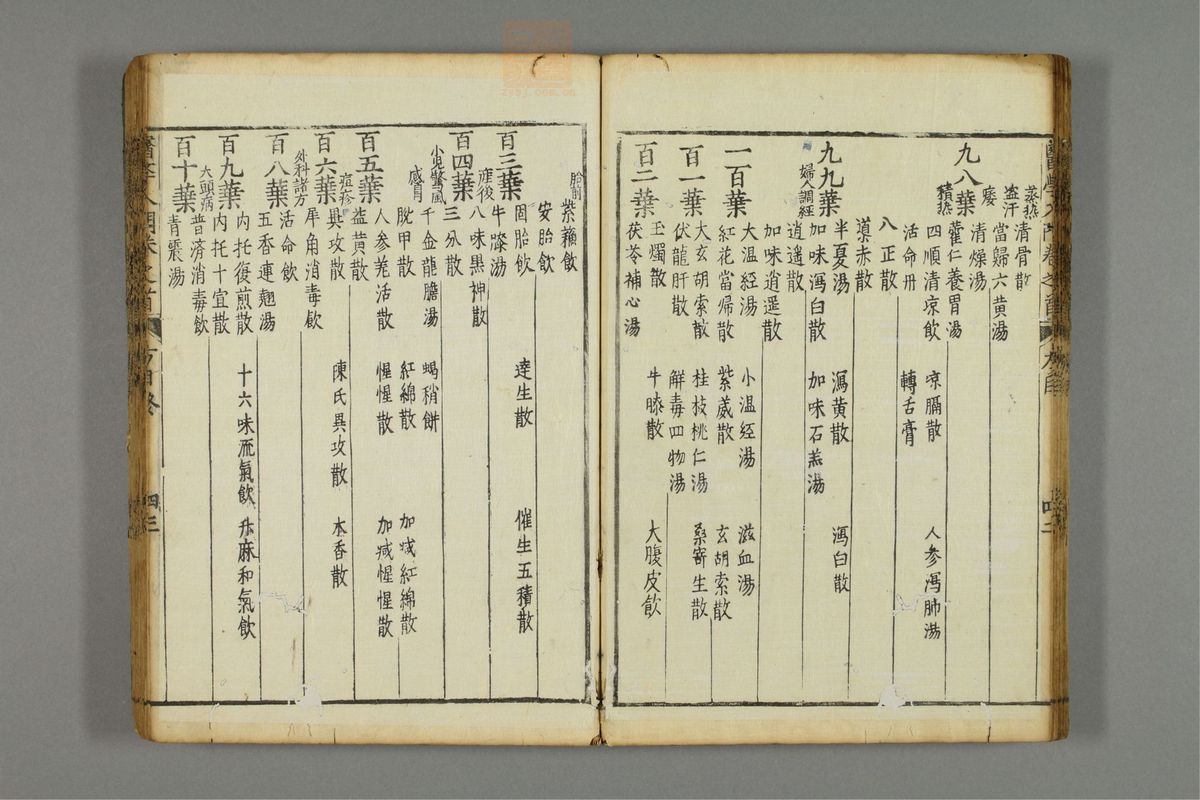 蒸熱 清骨散
盗汗 當歸六黄湯
痿 清燥湯
九八葉 積热 藿仁養胃湯
四順清凉飲 凉膈散 人参瀉肺湯
活命丹 轉舌膏
八正散
導赤散
九九葉 半夏湯 瀉黄散 瀉白散
婦人調經 加味瀉白散 加味石羔湯
逍遥散
加味逍遥散
一百葉 大温經湯 小温经湯 滋血湯
紅花當帰散 紫葳散 玄胡索散
百一葉 大玄胡索散 桂枝桃仁湯 桑寄生散
伏龍肝散 解毒四物湯
百二葉 玉燭散 牛膝散 大腹皮飲
茯苓補心湯
胎前 紫蘓飲
安胎飲
百三葉 固胎飲 達生散 催生五積散
牛膝湯
產後 八味黒神散
百四葉 三分散
小児驚風 千金龍膽湯 蝎稍餅
感冒 脱甲散 紅綿散 加减紅綿散
百五葉 人参羌活散 惺惺散 加减惺惺散
痘疹 益黄散
百六葉 異攻散 陳氏異攻散 木香散
犀角消毒飲
外科諸方 活命飲
百八葉 五香連翹湯
内托復煎散 十六味流氣飲 升麻和氣飲
百九葉 内托十宣散
大頭病 普濟消毒飲
百十葉 青震湯